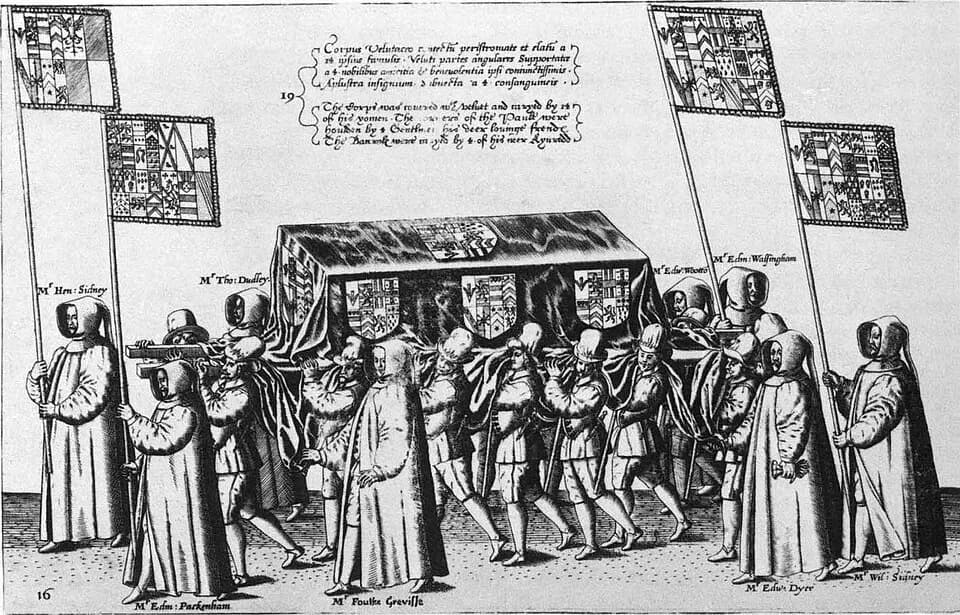 Corpus Velutaceo peristromate et elatu a
14 ipsius famulis. Veluti partes angulares Supportatæ
a 4 nobilibus & benevolentia ipsi coniunctissimis.
Aplustra insignium a 4 consanguineis.
19
The Corps was covered with Velvet and caryed by 14
of his yomen. The corners of the Paule were
houlden by 4 Gentl: his deer lovinge frends
The Baners were caryed by 4 of his neer Kynred
Mr Hen: Sidney
Mr Tho: Dudley
Mr Edw: Wotto
Mr Edm: Walsingham
Mr Edm: Packenham
Mr Foulke Grevisse
Mr Edw: Dyer
Mr Wil: Sidney
16